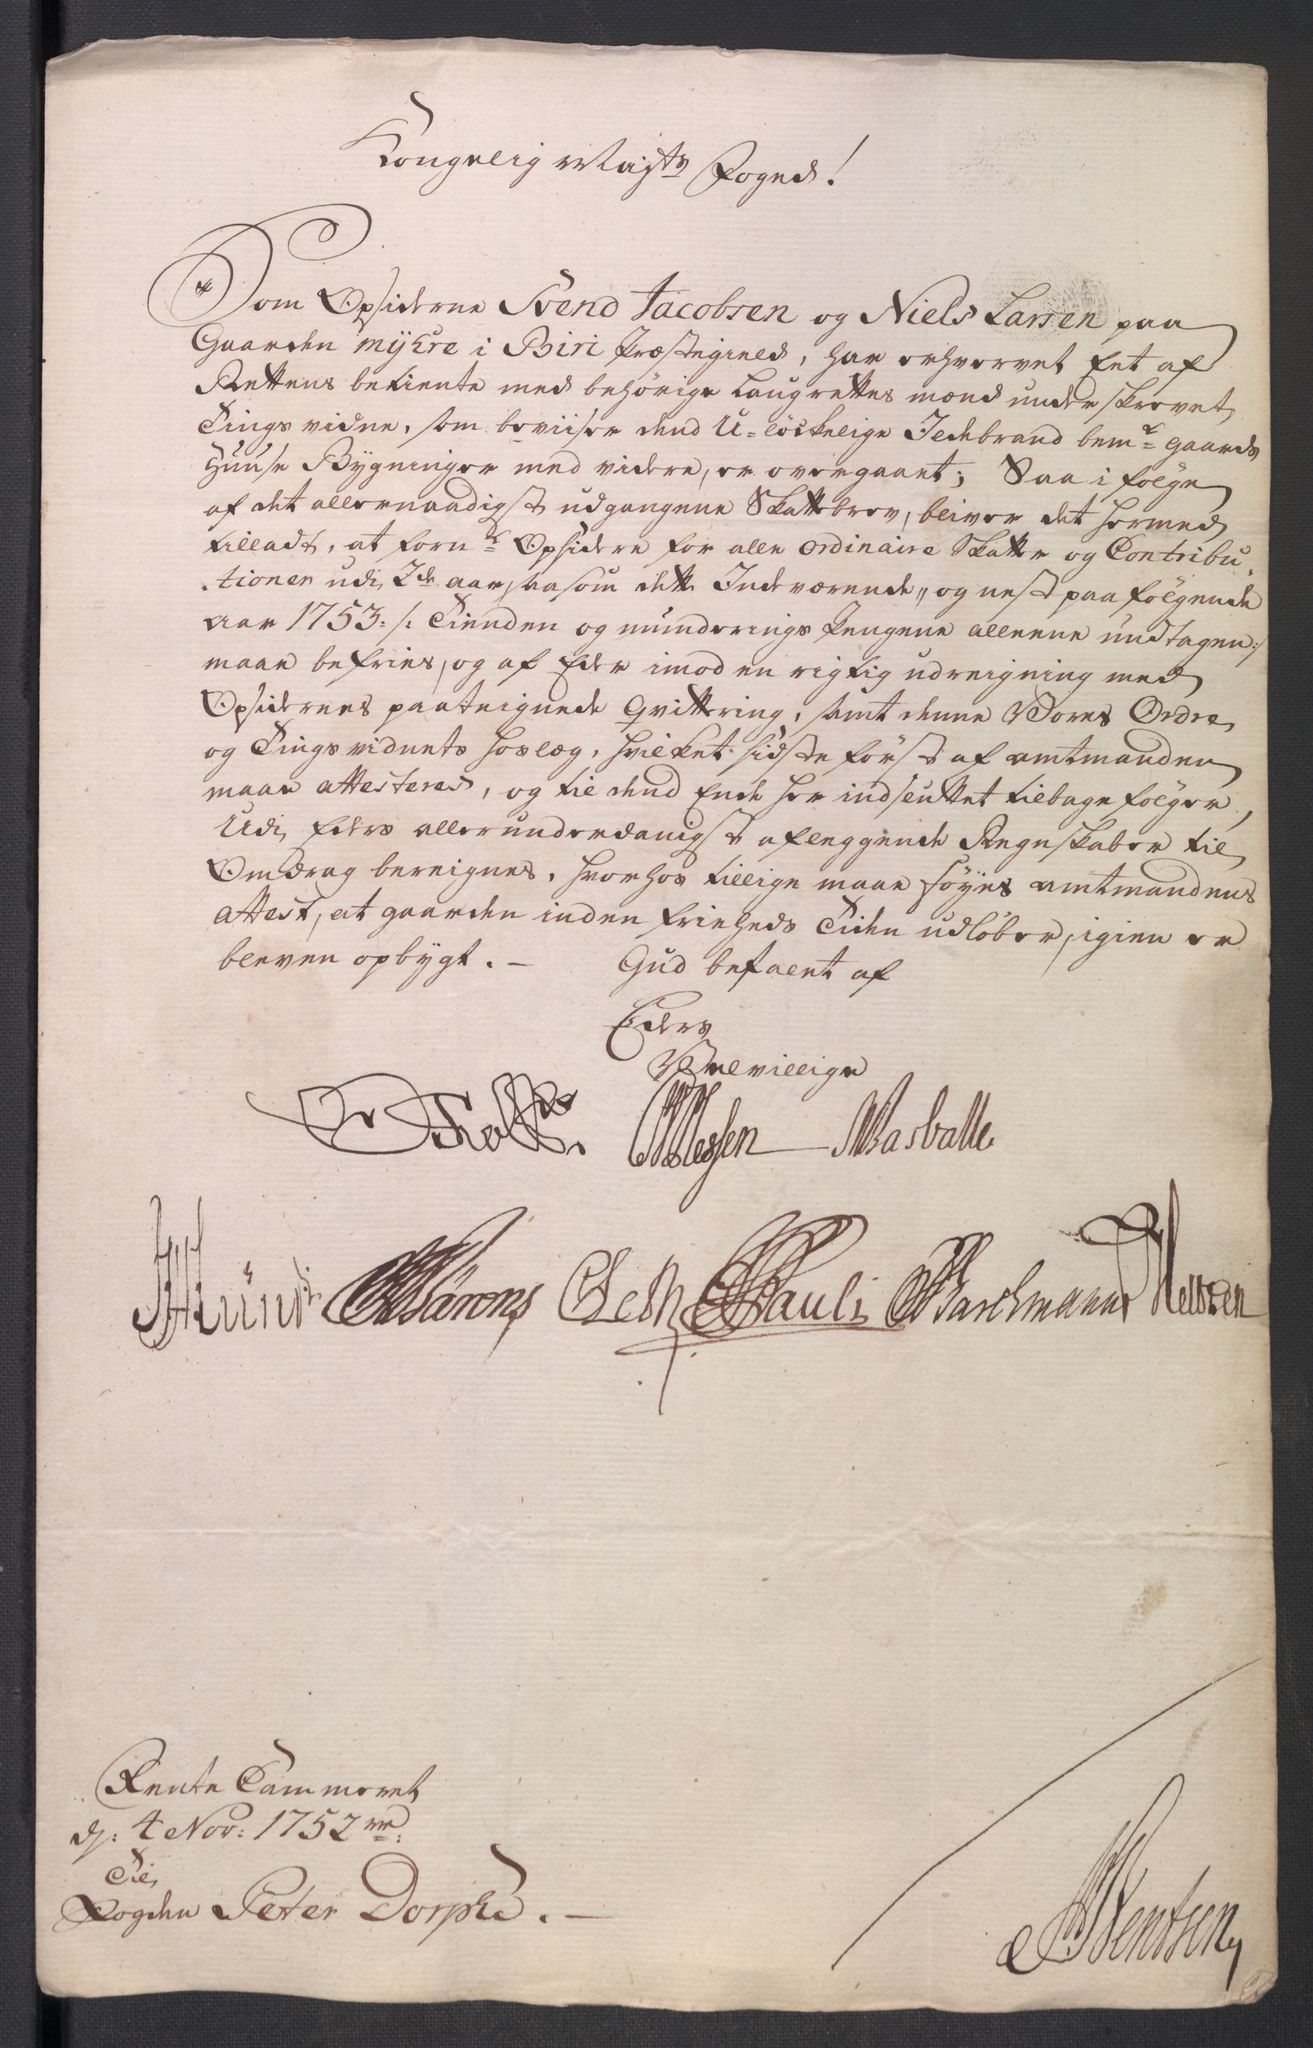 Kongelig Mayts Foged!
Som Opsiderne Svend Jacobsen og Niels Larsen paa
Gaarden Myhre i Biri Præstegield, har erhvervet Eet af
Rettens betiente med behörige Laugrettes mænd underskrevet
Tings vidne, som beviiser dend U-löckelige Ildebrand bemte gaards
Huuse Bygninger med videre, er overgaaet; Saa i følge
af det allernaadigst udgangene Skattebrev, bliver det hermed
tilladt, at fornte Opsidere for alle ordinaire Skatter og Contribu-
tioner udi 2de aar, saasom dette Indeværende, og nest paafølgende
aar 1753 /: Tienden og munderings Pengene alleene undtagen :/
maae befries, og af Eder imod en rigtig udreigning med
Opsidernes paateignede Qvittering, samt denne Vores Ordre
og Tingsvidnets hoslæg, hvilket sidste først af amtmanden
maae attesteres, og til dend Ende her indsluttet tilbage følger,
Udi Eders allerunderdanigst aflæggende Regnskaber til
Omdrag bereignes, hvorhos tillige maae föyes amtmandens
attest, at gaarden inden friheds Tiden udløber, igien er
bleven opbygt. - Gud befalet af
Eders
Velvillige
Holst. Nessen Masballe
Hünd Mårens Leth Pauli Barchmann Nelssen
Rente Cammeret
d: 4 Nov: 1752
Til
Fogden Peter Dorph. -
Wentsen